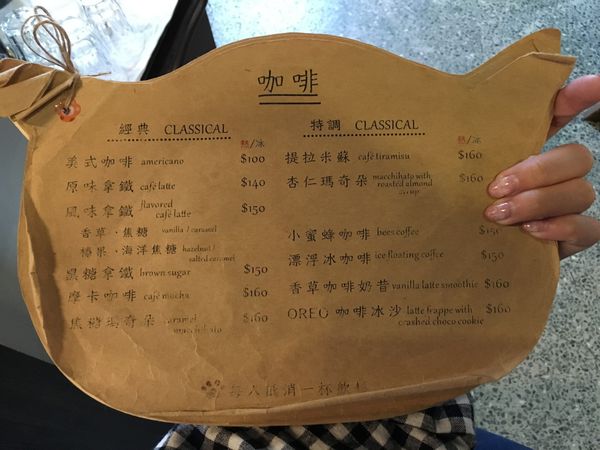 咖啡
經典 CLASSICAL
熱/冰
美式咖啡 americano $100
原味拿鐵 café latte $140
風味拿鐵 flavored café latte $150
香草．焦糖 vanilla / caramel
榛果．海洋焦糖 hazelnut / salted caramel
黑糖拿鐵 brown sugar $150
摩卡咖啡 café mocha $160
焦糖瑪奇朵 caramel macchiato $160
特調 CLASSICAL
熱/冰
提拉米蘇 café tiramisu $160
杏仁瑪奇朵 macchihato with roasted almond syrup $160
小蜜蜂咖啡 bees coffee $150
漂浮冰咖啡 ice floating coffee $150
香草咖啡奶昔 vanilla latte smoothie $160
OREO 咖啡冰沙 latte frappe with crashed choco cookie $160
每人低消一杯飲料